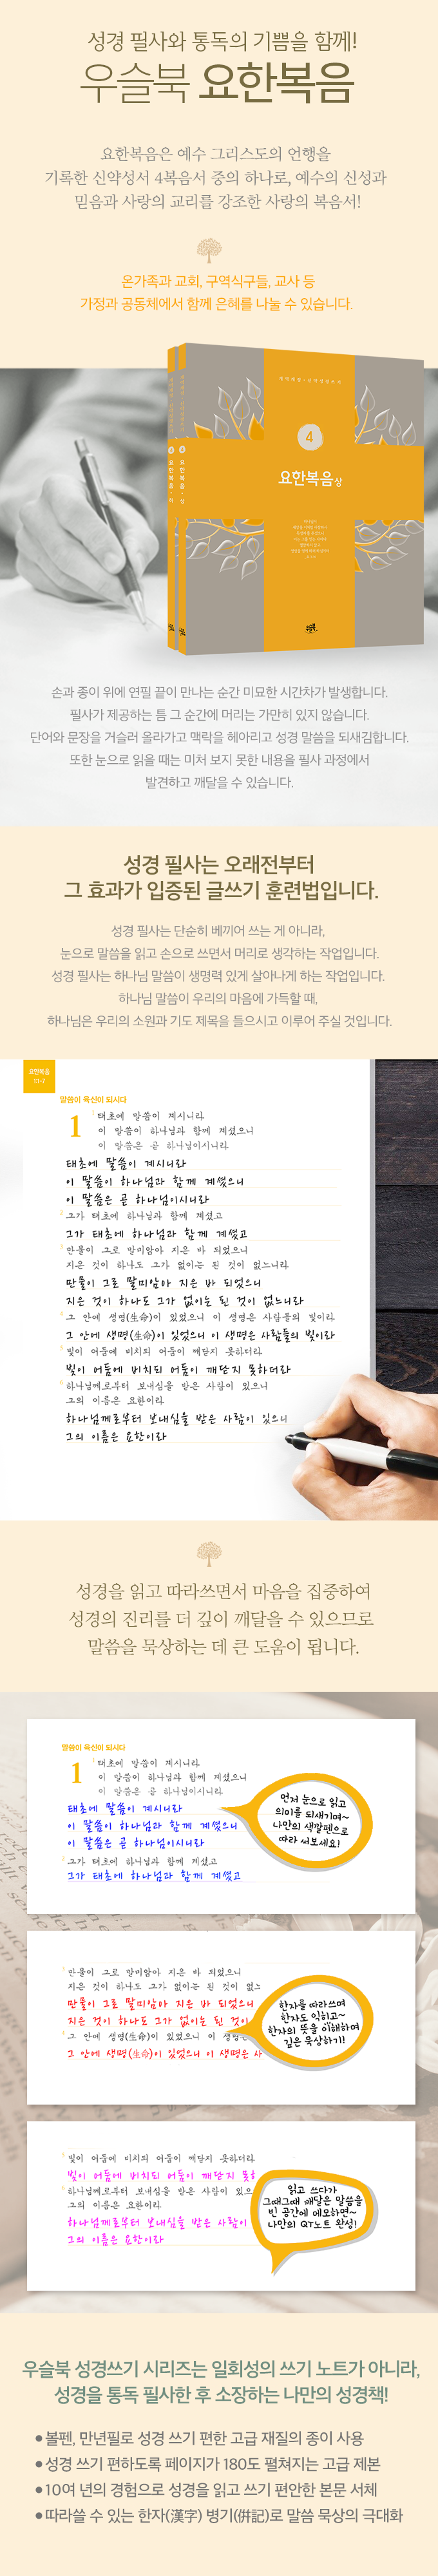 성경 필사와 통독의 기쁨을 함께!
우슬북 요한복음
요한복음은 예수 그리스도의 언행을
기록한 신약성서 4복음서 중의 하나로, 예수의 신성과
믿음과 사랑의 교리를 강조한 사랑의 복음서!
온가족과 교회, 구역식구들, 교사 등
가정과 공동체에서 함께 은혜를 나눌 수 있습니다.
4
요한복음상
4 요한복음·하
4 요한복음·상
우슬북
손과 종이 위에 연필 끝이 만나는 순간 미묘한 시간차가 발생합니다.
필사가 제공하는 틈 그 순간에 머리는 가만히 있지 않습니다.
단어와 문장을 거슬러 올라가고 맥락을 헤아리고 성경 말씀을 되새김합니다.
또한 눈으로 읽을 때는 미처 보지 못한 내용을 필사 과정에서
발견하고 깨달을 수 있습니다.
성경 필사는 오래전부터
그 효과가 입증된 글쓰기 훈련법입니다.
성경 필사는 단순히 베끼어 쓰는 게 아니라,
눈으로 말씀을 읽고 손으로 쓰면서 머리로 생각하는 작업입니다.
성경 필사는 하나님 말씀이 생명력 있게 살아나게 하는 작업입니다.
하나님 말씀이 우리의 마음에 가득할 때,
하나님은 우리의 소원과 기도 제목을 들으시고 이루어 주실 것입니다.
요한복음
1:1-7
말씀이 육신이 되시다
1 1 태초에 말씀이 계시니라
이 말씀이 하나님과 함께 계셨으니
이 말씀은 곧 하나님이시니라
태초에 말씀이 계시니라
이 말씀이 하나님과 함께 계셨으니
이 말씀은 곧 하나님이시니라
2 그가 태초에 하나님과 함께 계셨고
그가 태초에 하나님과 함께 계셨고
3 만물이 그로 말미암아 지은 바 되었으니
지은 것이 하나도 그가 없이는 된 것이 없느니라
만물이 그로 말미암아 지은 바 되었으니
지은 것이 하나도 그가 없이는 된 것이 없느니라
4 그 안에 생명(生命)이 있었으니 이 생명은 사람들의 빛이라
그 안에 생명(生命)이 있었으니 이 생명은 사람들의 빛이라
5 빛이 어둠에 비치되 어둠이 깨닫지 못하더라
빛이 어둠에 비치되 어둠이 깨닫지 못하더라
6 하나님께로부터 보내심을 받은 사람이 있으니
그의 이름은 요한이라
하나님께로부터 보내심을 받은 사람이 있으니
그의 이름은 요한이라
성경을 읽고 따라쓰면서 마음을 집중하여
성경의 진리를 더 깊이 깨달을 수 있으므로
말씀을 묵상하는 데 큰 도움이 됩니다.
말씀이 육신이 되시다
1 1 태초에 말씀이 계시니라
이 말씀이 하나님과 함께 계셨으니
이 말씀은 곧 하나님이시니라
태초에 말씀이 계시니라
이 말씀이 하나님과 함께 계셨으니
이 말씀은 곧 하나님이시니라
2 그가 태초에 하나님과 함께 계셨고
그가 태초에 하나님과 함께 계셨고
먼저 눈으로 읽고
의미를 되새기며~
나만의 색깔펜으로
따라 써보세요!
3 만물이 그로 말미암아 지은 바 되었으니
지은 것이 하나도 그가 없이는 된 것이 없느
만물이 그로 말미암아 지은 바 되었으니
지은 것이 하나도 그가 없이는 된 것이
4 그 안에 생명(生命)이 있었으니 이 생명은
그 안에 생명(生命)이 있었으니 이 생명은 사
한자를 따라쓰며
한자도 익히고~
한자의 뜻을 이해하며
깊은 묵상하기!
5 빛이 어둠에 비치되 어둠이 깨닫지 못하더라
빛이 어둠에 비치되 어둠이 깨닫지 못하
6 하나님께로부터 보내심을 받은 사람이 있으
그의 이름은 요한이라
하나님께로부터 보내심을 받은 사람이
그의 이름은 요한이라
읽고 쓰다가
그때그때 깨달은 말씀을
빈 공간에 메모하면~
나만의 QT노트 완성!
우슬북 성경쓰기 시리즈는 일회성의 쓰기 노트가 아니라,
성경을 통독 필사한 후 소장하는 나만의 성경책!
• 볼펜, 만년필로 성경 쓰기 편한 고급 재질의 종이 사용
• 성경 쓰기 편하도록 페이지가 180도 펼쳐지는 고급 제본
• 10여 년의 경험으로 성경을 읽고 쓰기 편안한 본문 서체
• 따라쓸 수 있는 한자(漢字) 병기(倂記)로 말씀 묵상의 극대화